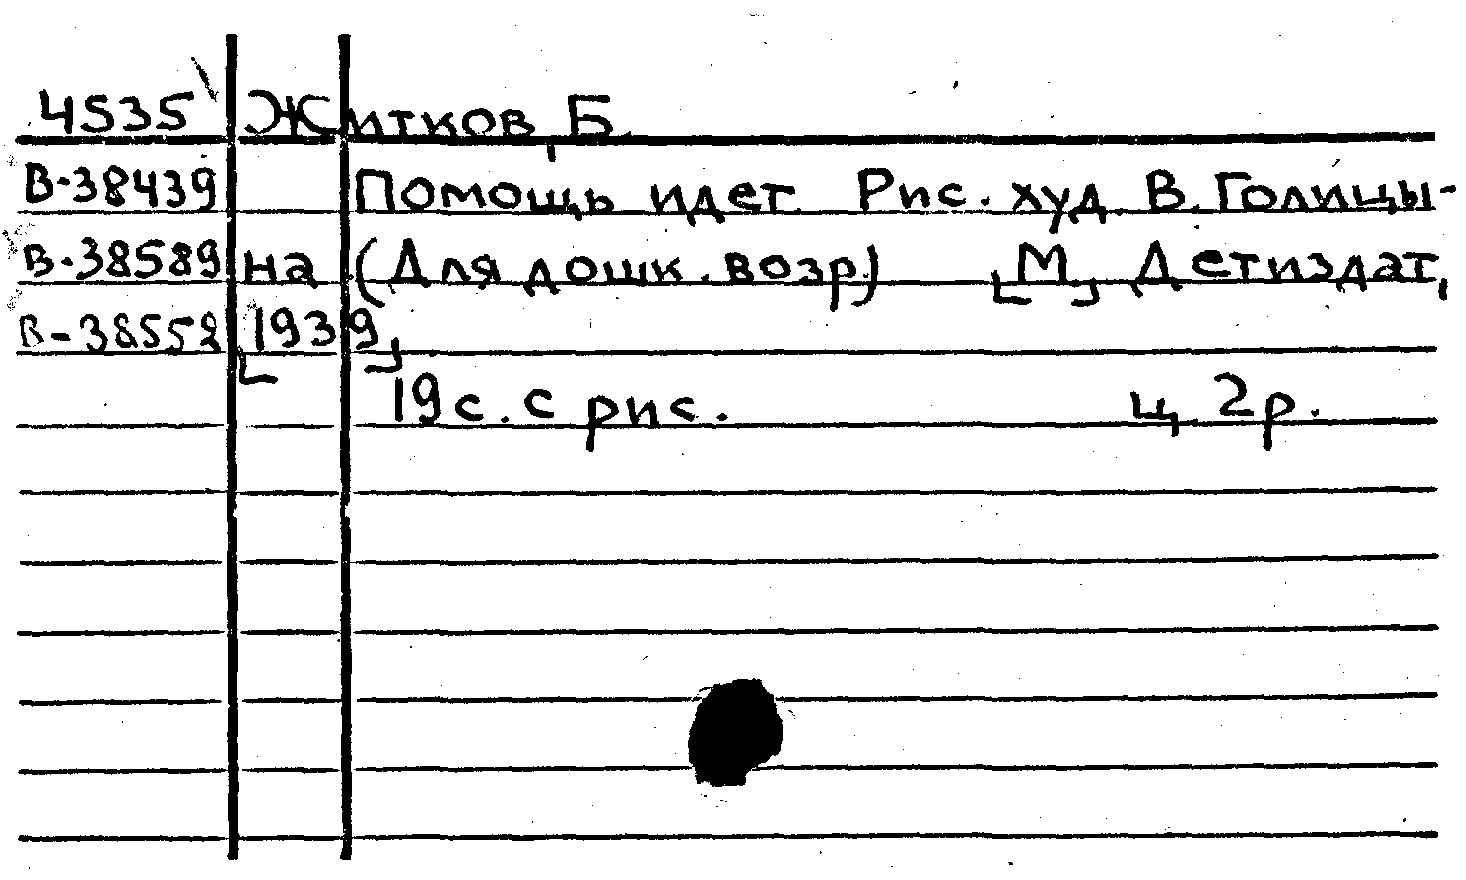 4535 Житков, Б.
В-38439 Помощь идет. Рис. худ. В. Голицы-
В-38589 на (Для дошк. возр.) [М.], Детиздат,
В-38552 [1939]
19 с. с рис. ц. 2 р.